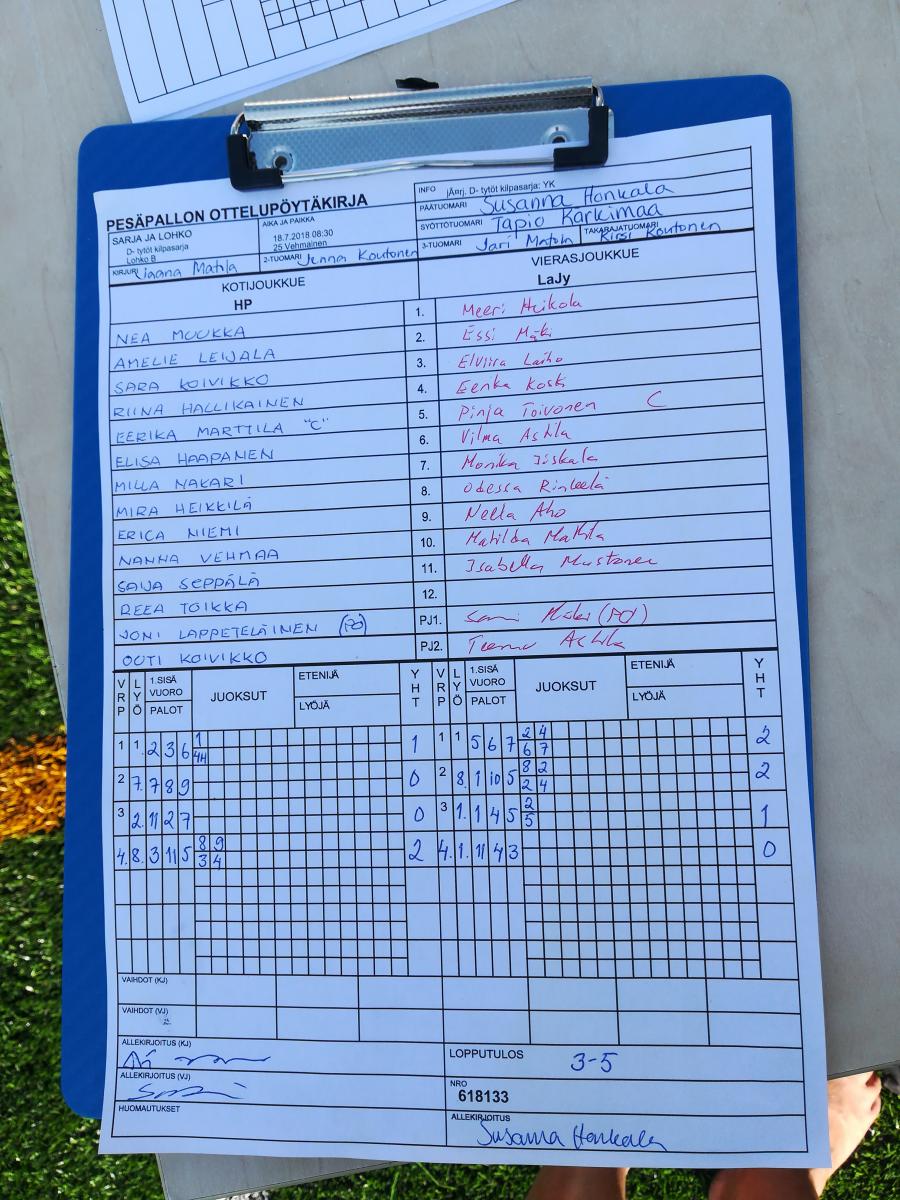 PESÄPALLON OTTELUPÖYTÄKIRJA
INFO jÄnrj. D- tytöt kilpasarja: YK
PÄÄTUOMARI Susanna Honkala
SYÖTTÖTUOMARI Tapio Karkimaa
SARJA JA LOHKO
D- tytöt kilpasarja
Lohko B
AIKA JA PAIKKA
18.7.2018 08:30
25 Vehmainen
3-TUOMARI Jari Mattila
TAKARAJATUOMARI Kirsi Koutonen
KIRJURI Jaana Mattila
2-TUOMARI Jenna Koutonen
KOTIJOUKKUE
HP
VIERASJOUKKUE
LaJy
NEA MUUKKA 1. Meeri Heikola
AMELIE LEIJALA 2. Essi Mäki
SARA KOIVIKKO 3. Elviira Laiho
RIINA HALLIKAINEN 4. Eerika Koski
EERIKA MARTTILA "C" 5. Pinja Toivonen C
ELISA HAAPANEN 6. Vilma Ashla
MILLA NAKARI 7. Monika
MIRA HEIKKILÄ 8. Odessa Rinkeelä
ERICA NIEMI 9. Nella Aho
NANNA VEHMAA 10. Matilda Mattila
SAIJA SEPPÄLÄ 11. Isabella Mustonen
REEA TOIKKA 12.
JONI LAPPETELÄINEN (PJ) PJ1. Sami Mäki (PJ)
OUTI KOIVIKKO PJ2. Teemu Ashla
VRP LYÖ 1.SISÄ VUORO PALOT JUOKSUT ETENIJÄ LYÖJÄ YHT VRP LYÖ 1.SISÄ VUORO PALOT JUOKSUT ETENIJÄ LYÖJÄ YHT
1 1. 2 3 6 1 1 1 1 5 6 7 2 4 2
6 7
2 7. 7 8 9 0 2 8. 1 10 5 8 2 2
2 4
3 2. 11 2 7 0 3 1. 1 4 5 2 1
5
4. 8. 3 11 5 8 9 2 4. 1. 11 4 3 0
3 4
VAIHDOT (KJ)
VAIHDOT (VJ)
ALLEKIRJOITUS (KJ)
LOPPUTULOS 3-5
ALLEKIRJOITUS (VJ)
NRO
618133
HUOMAUTUKSET
ALLEKIRJOITUS
Susanna Honkala